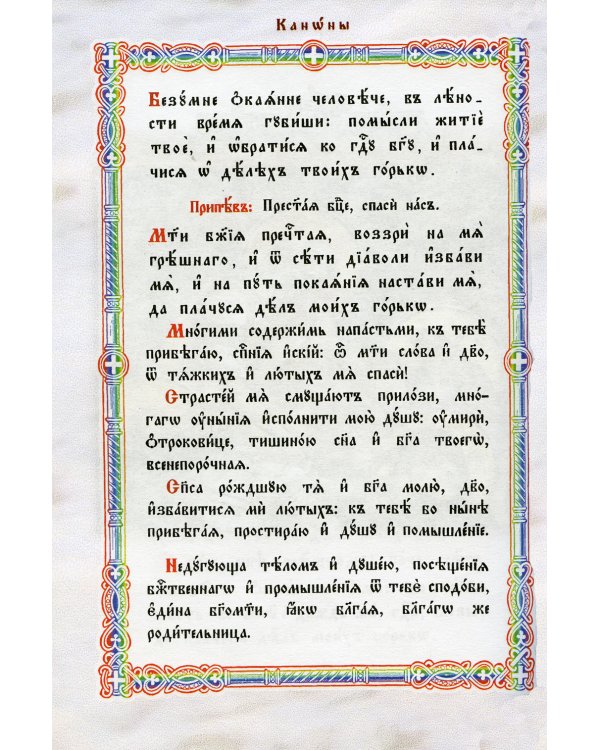 Канѡ́ны
Безꙋ́мне ѻ҆каѧ́нне человѣ́че, въ лѣ́но-
сти вре́мѧ гꙋби́ши: помы́сли житїѐ
твоѐ, и҆ ѡ҆брати́сѧ ко гд҇ꙋ бг҃ꙋ, и҆ пла́-
чисѧ ѡ҆ дѣ́лѣхъ твои́хъ го́рькѡ.
Припѣ́въ: Прест҃а́ѧ бц҃е, спасѝ на́съ.
Мт҃и бж҃їѧ преч҇таѧ, воззрѝ на мѧ̀
грѣ́шнаго, и҆ ѿ сѣ́ти дїа́воли и҆зба́ви
мѧ̀, и҆ на пꙋ́ть покаѧ́нїѧ наста́ви мѧ̀,
да пла́чꙋсѧ дѣ́лъ мои́хъ го́рькѡ.
Мно́гими содержи́мь напа́стьми, къ тебѣ̀
прибѣга́ю, сп҃нїѧ и҆скі́й: ѽ мт҃и сло́ва и҆ дв҃о,
ѿ тѧ́жкихъ и҆ лю́тыхъ мѧ̀ спасѝ!
Страсте́й мѧ̀ смꙋща́ютъ прило́зи, мно́-
гагѡ ᲂу҆ны́нїѧ и҆спо́лнити мою̀ дꙋ́шꙋ: ᲂу҆мирѝ,
ѻ҆трокови́це, тишино́ю сн҃а и҆ бг҃а твоегѡ̀,
всенепоро́чнаѧ.
Сп҃са ро́ждшꙋю тѧ̀ и҆ бг҃а молю̀, дв҃о,
и҆зба́витисѧ мѝ лю́тыхъ: къ тебѣ́ бо ны́нѣ
прибѣга́ѧ, простира́ю и҆ дꙋ́шꙋ и҆ помышле́нїе.
Недꙋ́гꙋюща тѣ́ломъ и҆ дꙋше́ю, посѣще́нїѧ
бж҇твеннагѡ и҆ промышле́нїѧ ѿ тебѐ сподо́би,
є҆ди́на бг҃ома́ти, ꙗ҆́кѡ бл҃га́ѧ, бл҃га́гѡ же
роди́тельница.